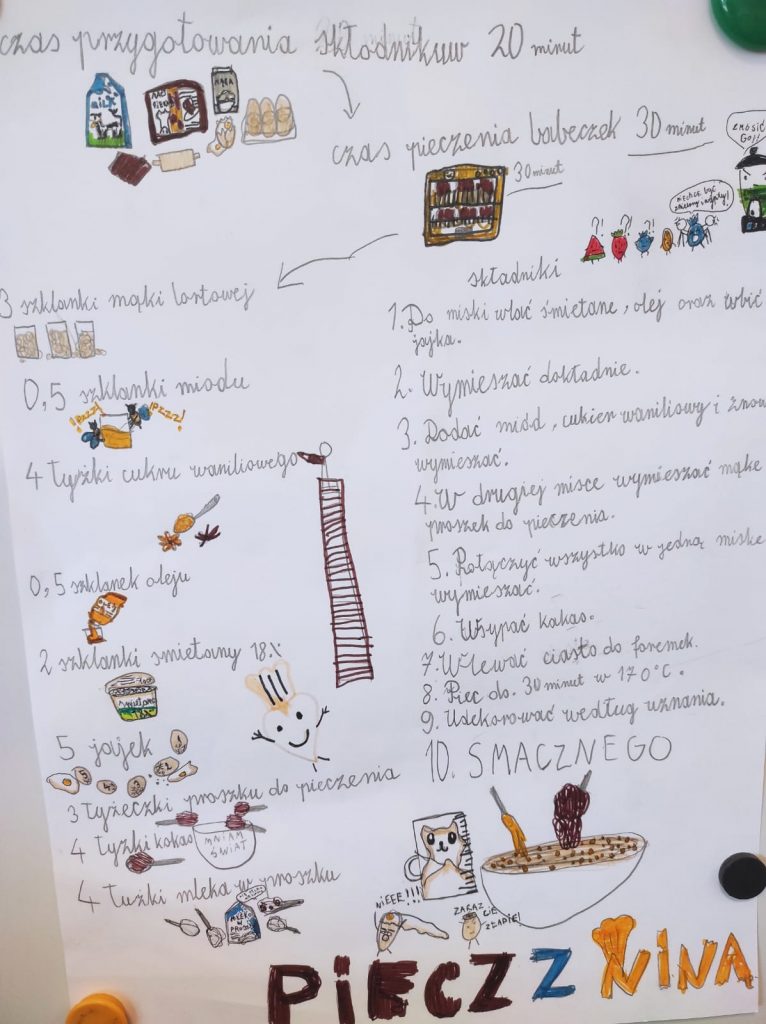 czas przygotowania składnikuw 20 minut
MILK
MĄKA
czas pieczenia babeczek 30 minut
30 minut
ZMOSIĆ
GO!!
?! ?! ?!
3 szklanki mąki tortowej
0,5 szklanki miodu
!Bzzz! !Bzzz!
4 łyżki cukru waniliowego
0,5 szklanek oleju
2 szklanki smietany 18%
5 jajek
3 łyżeczki proszku do pieczenia
4 łyżki kakao
MNIAM
ŚWIAT
4 łużki mleka w proszku
MLEKO
W
składniki
1. Do miski wlać śmietane, olej oraz wbić
jajka.
2. Wymieszać dokładnie.
3. Dodać miód, cukier waniliowy i znow
wymieszać.
4. W drugiej misce wymieszać mąke
proszek do pieczenia.
5. Połączyć wszystko w jedną miske
wymieszać.
6. Wsypać kakao.
7. Wlewać ciasto do foremek.
8. Piec do 30 minut w 170°C.
9. Udekorować według uznania.
10. SMACZNEGO
NIEEE!!!
ZARAZ
CIE
ZŁADIE!
PIECZ Z NINA